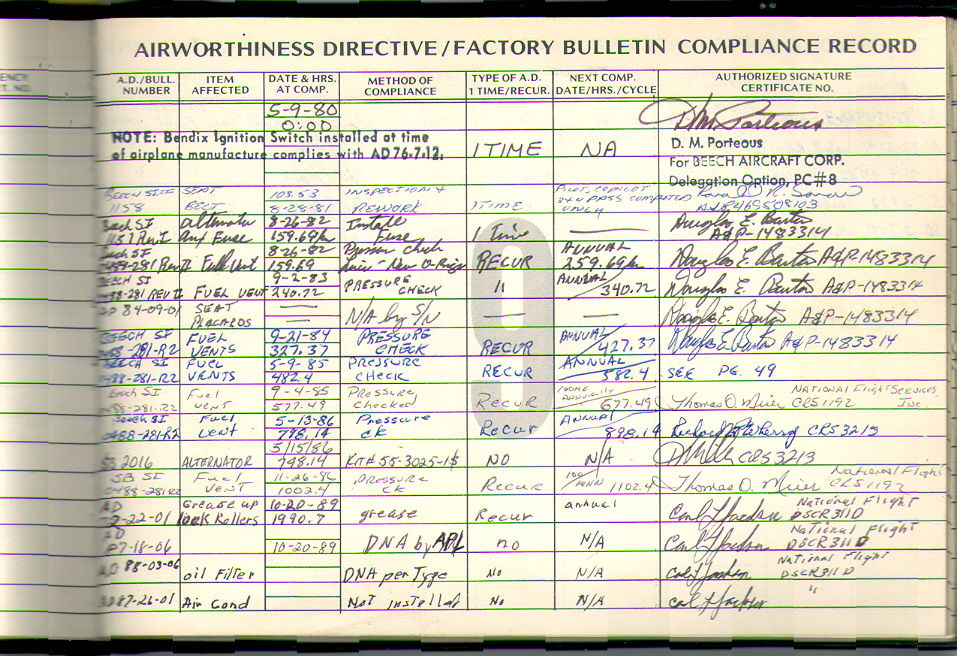 AIRWORTHINESS DIRECTIVE/FACTORY BULLETIN COMPLIANCE RECORD
A.D./BULL. NUMBER ITEM AFFECTED DATE & HRS. AT COMP. METHOD OF COMPLIANCE TYPE OF A.D. 1 TIME/RECUR. NEXT COMP. DATE/HRS./CYCLE AUTHORIZED SIGNATURE CERTIFICATE NO.
5-9-80
0:00
NOTE: Bendix Ignition Switch installed at time
of airplane manufacture complies with AD 76.7.12.
1 TIME NA
D. M. Porteous
For BEECH AIRCRAFT CORP.
Delegation Option, PC#8
BEECH SI# SEAT 103.53 INSPECTION & PILOT, COPILOT
1158 BELT 8-28-81 REWORK 1 TIME ONLY
Beech SI alternator 8-26-82 Install Douglas E. Baxter
Fuse 159.69 Fuse 1 Time A&P-1483314
Beech SI 8-26-82 ANNUAL
Fuel Vent 159.69 RECUR 259.69 Douglas E. Baxter A&P-1483314
BEECH SI 9-2-83 PRESSURE ANNUAL
0488-281 REV II FUEL VENT 240.72 CHECK " 340.72 Douglas E. Baxter A&P-1483314
AD 84-09-01 SEAT PLACARDS — N/A by S/N — — Douglas E. Baxter A&P-1483314
BEECH SI FUEL 9-21-84 PRESSURE ANNUAL
0488-281-R2 VENTS 327.37 CHECK RECUR 427.37 Douglas E. Baxter A&P-1483314
BEECH SI FUEL 5-9-85 PRESSURE ANNUAL
0488-281-R2 VENTS 482.4 CHECK RECUR 582.4 SEE PG. 49
Beech SI Fuel 9-4-85 Pressure NATIONAL Flight Services, Inc.
0488-281-R2 vent 577.49 Checked Recur 677.49 Thomas O. Meier CRS1192
Beech SI Fuel 5-13-86 Pressure ANNUAL
0488-281-R2 Vent 798.14 CK Recur 898.14 CRS3213
5/15/86
SB 2016 ALTERNATOR 798.14 KIT# 55-3025-1S NO N/A CRS3213
SB SI Fuel 11-26-86 Pressure National Flight
0488-281R2 VENT 1002.4 CK Recur 1102.4 Thomas O. Meier CRS1192
AD Grease up 10-20-89 annual National Flight
22-01 lock Rollers 1990.7 grease Recur DSCR311D
AD National Flight
87-18-06 10-20-89 DNA by APL no N/A DSCR311D
AD 88-03-06 oil Filter DNA per Type No N/A National Flight DSCR311D
AD 87-26-01 Air Cond Not installed No N/A "